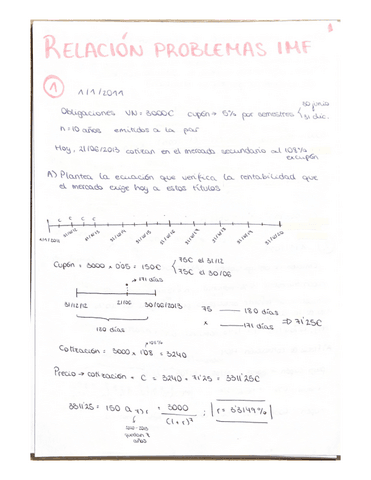 RELACIÓN PROBLEMAS IMF
1
1/1/2011
Obligaciones VN = 3000€ cupón → 5% por semestres 30 junio
31 dic.
n = 10 años emitidos a la par
Hoy, 21/06/2013 cotizan en el mercado secundario al 108%
excupón
A) Plantea la ecuación que verifica la rentabilidad que
el mercado exige hoy a estos títulos
C C C C
Cupón = 3000 × 0'05 = 150€ 75€ el 31/12
75€ el 30/06
171 días
31/12/12 21/06 30/06/2013
180 días
75 180 días
x 171 días ⇒ 71'25€
108%
Cotización = 3000 × 1'08 = 3240
Precio → cotización + C = 3240 + 71'25 = 3311'25€
3311'25 = 150 a + 3000 / (1+r) ; r = 3'3149%
años